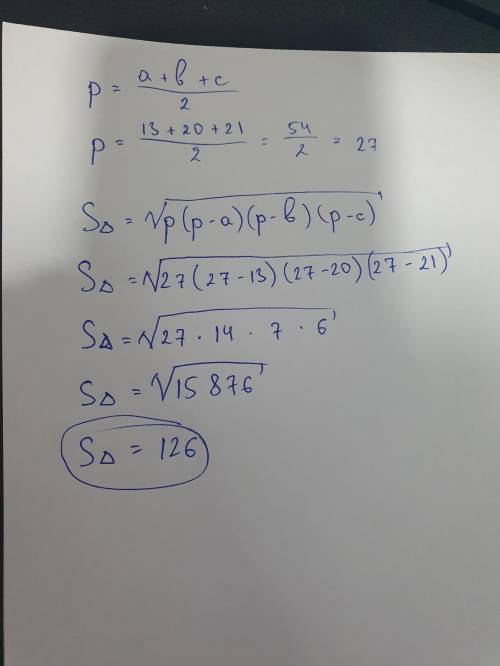 p = a + b + c / 2
p = 13 + 20 + 21 / 2 = 54 / 2 = 27
S△ = √p(p-a)(p-b)(p-c)
S△ = √27(27-13)(27-20)(27-21)
S△ = √27 · 14 · 7 · 6
S△ = √15 876
S△ = 126